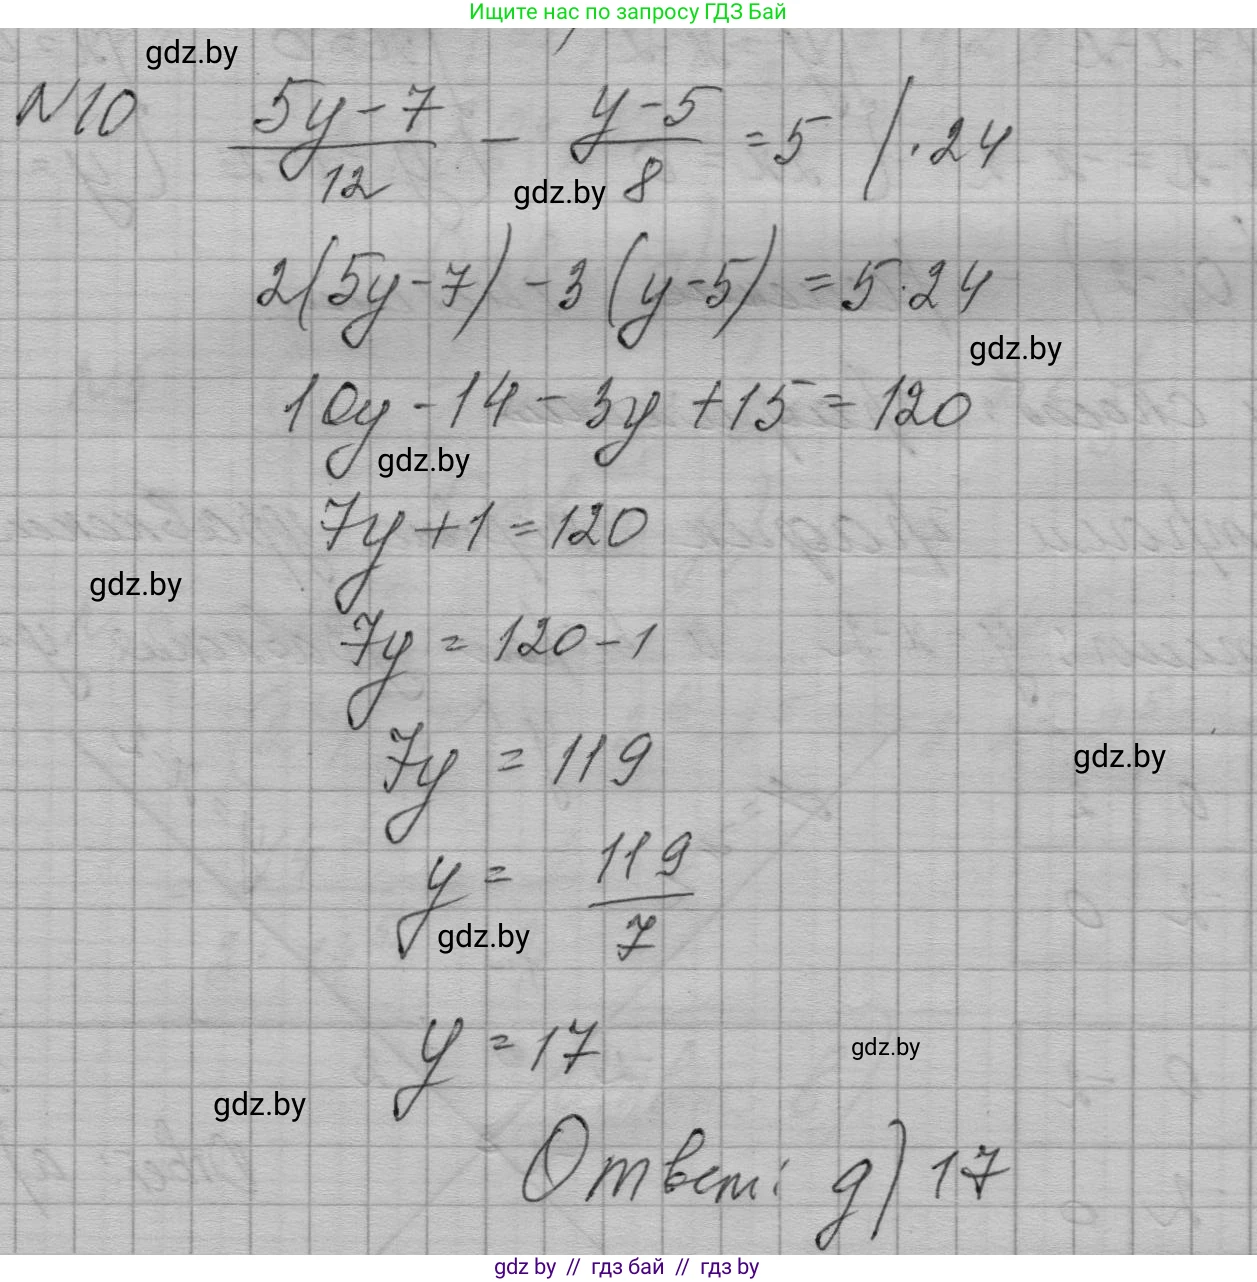 Ищите нас по запросу ГДЗ Бай
gdz.by
N10 (5y-7)/12 - (y-5)/8 = 5 / · 24
gdz.by
2(5y-7) - 3(y-5) = 5·24
gdz.by
10y - 14 - 3y + 15 = 120
gdz.by
7y + 1 = 120
gdz.by
7y = 120 - 1
7y = 119
gdz.by
y = 119/7
gdz.by
y = 17
gdz.by
gdz.by
Ответ: д) 17
gdz by // гдз бай // гдз by